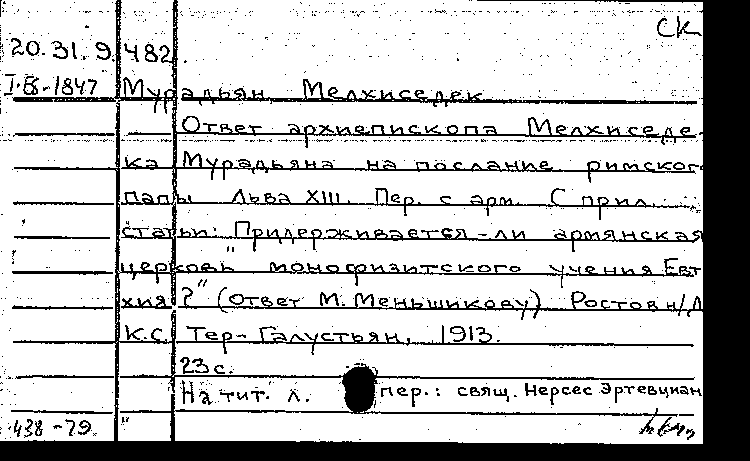 СК
20.31.9.482.
I.Б-1847 Мурадьян, Мелхиседек
Ответ архиепископа Мелхиседе-
ка Мурадьяна на послание римског
папы Льва XIII. Пер. с арм. С прил.
статьи: Придерживается-ли армянская
церковь" монофизитского учения Евт
хия?" (Ответ М. Меньшикову) Ростов н/Д
К.С. Тер-Галустьян, 1913.
23с.
На тит. л. пер.: свящ. Нерсес Эртевциан
438-79.